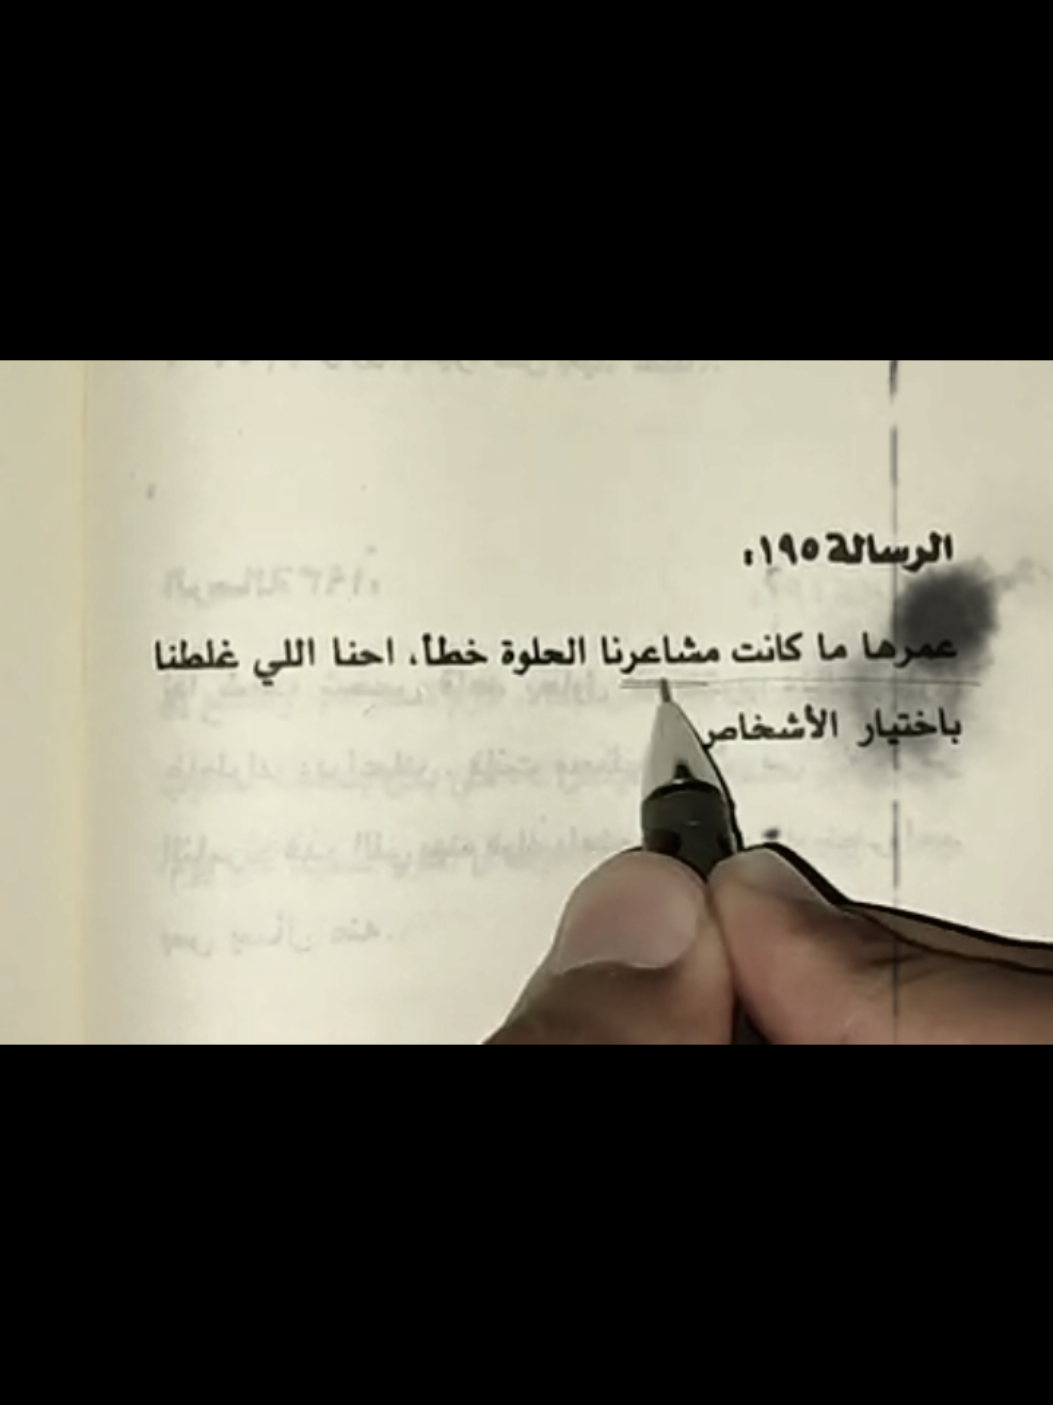 الرسالة ١٩٥:
عمرها ما كانت مشاعرنا الحلوة خطأ، احنا اللي غلطنا
باختيار الأشخاص